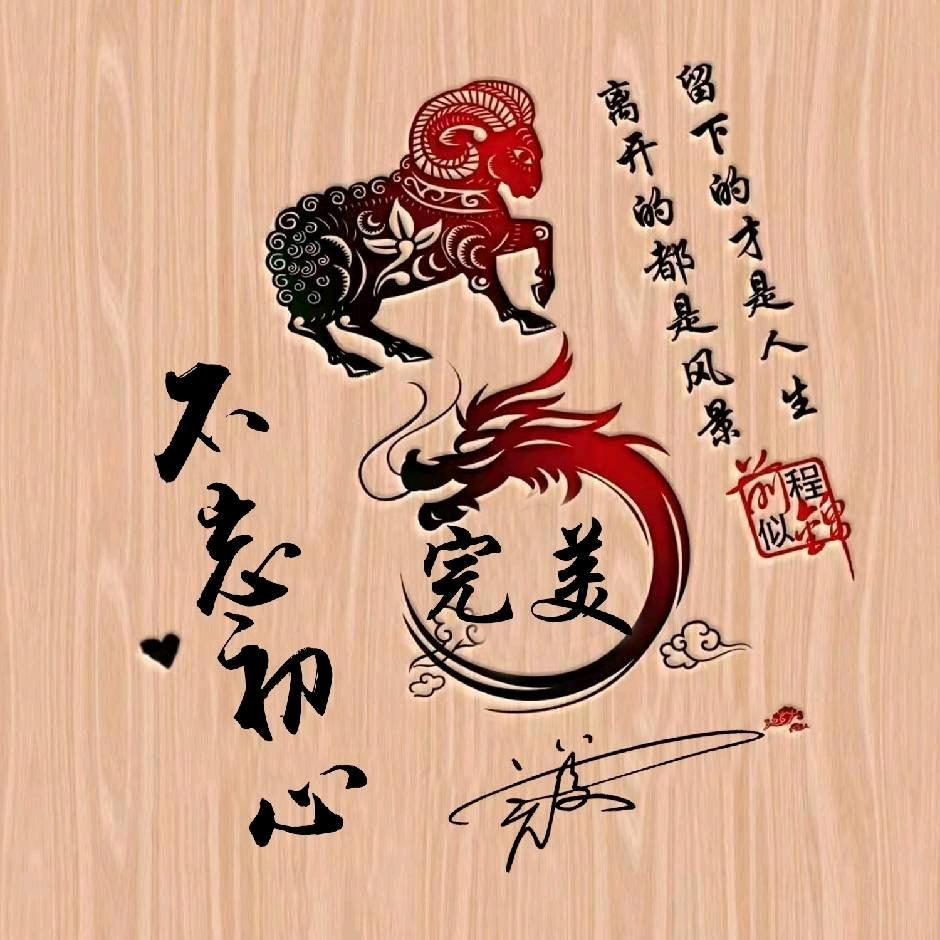 留下的才是人生
离开的都是风景
前程似锦
不忘初心
完美